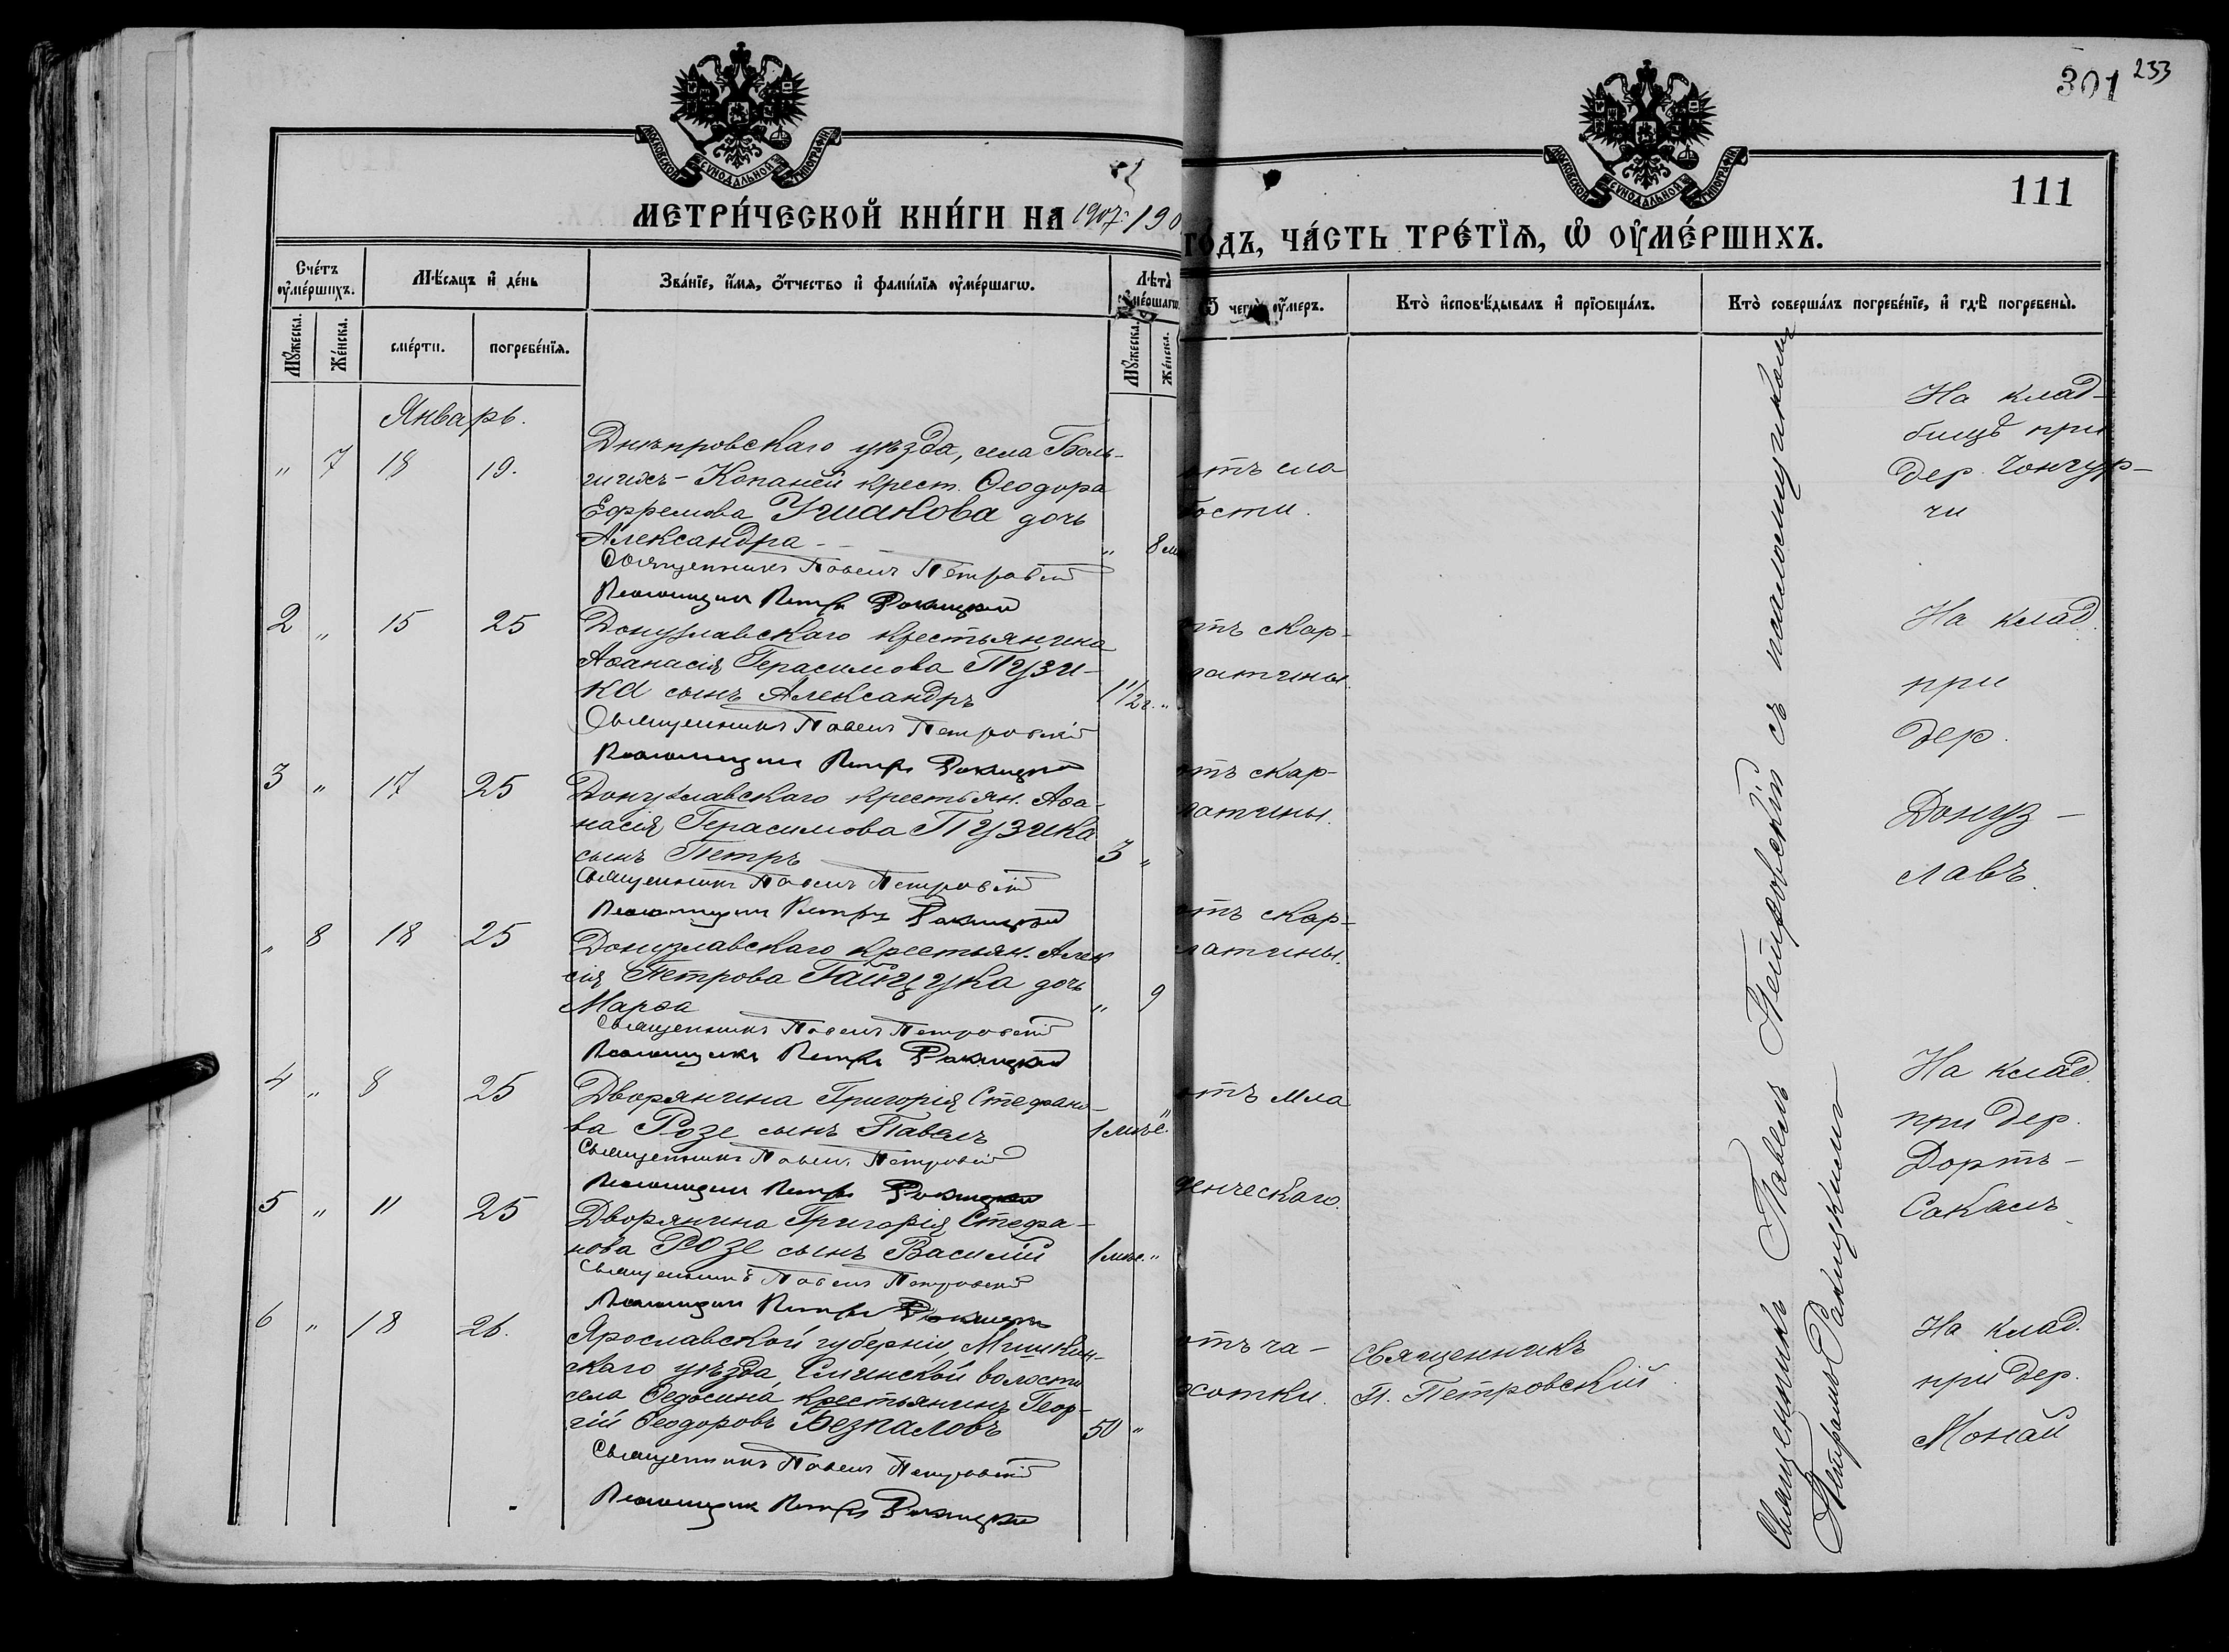 301 233
МОСКОВСКОЙ СѴНОДАЛЬНОЙ ТИПОГРАФІИ
МОСКОВСКОЙ СѴНОДАЛЬНОЙ ТИПОГРАФІИ
111
МЕТРИ́ЧЕСКОЙ КНИ́ГИ НА 1907 г. 190
ГО́ДЪ, ЧА́СТЬ ТРЕ́ТЇѦ, Ѡ ОУ҆МЕ́РШИХЪ.
Сче́тъ оу҆ме́ршихъ.
Мѣ́сяцъ и҆ де́нь
Зва́нїе, и҆́мя, ѻ҆́тчество и҆ фами́лїя оу҆ме́ршагѡ.
Лѣ́та оу҆ме́ршагѡ
Ѿ чегѡ̀ оу҆́меръ.
Кто̀ и҆сповѣ́дывалъ и҆ прїѡбща́лъ.
Кто̀ соверша́лъ погребе́нїе, и҆ гдѣ̀ погребены̀.
Му́жеска.
Же́нска.
сме́рти.
погребе́нїя.
Му́жеска.
Же́нска.
Январь.
" 7 18 19.
Днѣпровскаго уѣзда, села Боль-
шихъ-Копаней крест. Ѳеодора
Ефремова Ушакова дочь
Александра " 8 м
Священникъ Павелъ Петровскій
Псаломщикъ Петръ Ракицкій
отъ сла
бости.
На клад-
бищѣ при
дер. Чонгур-
чи
2 " 15 25
Донузлавскаго крестьянина
Аѳанасія Герасимова Пузи-
ка сынъ Александръ 1 1/2 г. "
Священникъ Павелъ Петровскій
Псаломщикъ Петръ Ракицкій
отъ скар-
латины.
На клад.
при
дер.
Донуз-
лавъ.
3 " 17 25
Донузлавскаго крестьян. Аѳа-
насія Герасимова Пузика
сынъ Петръ 3 "
Священникъ Павелъ Петровскій
Псаломщикъ Петръ Ракицкій
отъ скар-
латины.
" 8 18 25
Донузлавскаго крестьян. Алек
сія Петрова Гайцука дочь
Марѳа " 9
Священникъ Павелъ Петровскій
Псаломщикъ Петръ Ракицкій
отъ скар-
латины.
4 " 8 25
Дворянина Григорія Стефано-
ва Розе сынъ Павелъ 1 мѣс. "
Священникъ Павелъ Петровскій
Псаломщикъ Петръ Ракицкій
отъ мла
денческаго.
На клад.
при дер.
Дортъ-
Сакалъ
5 " 11 25
Дворянина Григорія Стефа-
нова Розе сынъ Василій 1 мѣс. "
Священникъ Павелъ Петровскій
Псаломщикъ Петръ Ракицкій
6 " 18 26.
Ярославской губерніи, Мышкин-
скаго уѣзда, волости
села Ѳедосина крестьянинъ Геор-
гій Ѳеодоровъ Безпаловъ 50 "
Священникъ Павелъ Петровскій
Псаломщикъ Петръ Ракицкій
отъ ча-
хотки.
Священникъ
П. Петровскій.
На клад.
при дер.
Монай
Священникъ Павелъ Петровскій съ псаломщикомъ
Петромъ Ракицкимъ